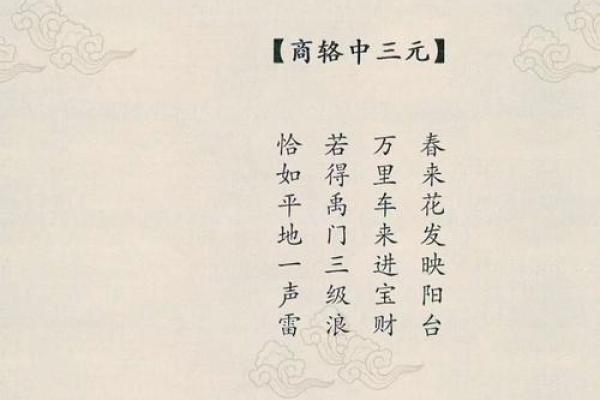 【商辂中三元】
春来花发映阳台
万里车来进宝财
若得禹门三级浪
恰如平地一声雷